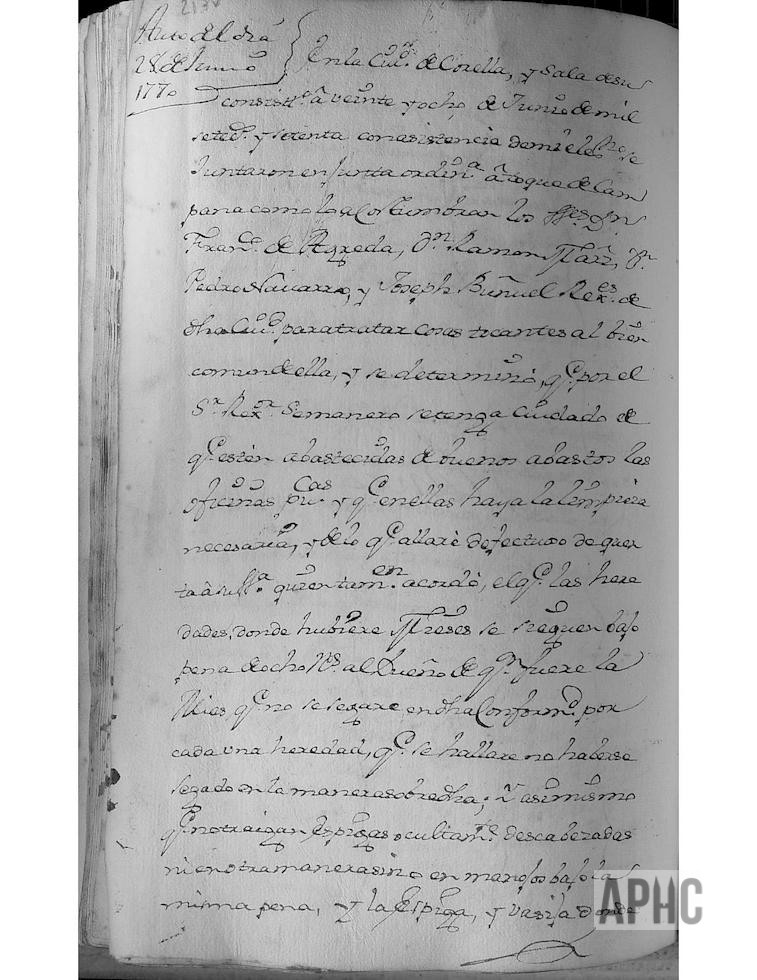 213v
Auto del dia
28 de Junio
1770
En la Ciud. de Corella, y Sala de su
consistto. a veinte y ocho de Junio de mil
setecs. y setenta con asistencia de mi el essno. se
Juntaron en Junta ordina. a toque de Cam
pana como lo acostumbran los SSes. Dn.
Franco. de Agreda, Dn. Ramon Marz., Dn.
Pedro Navarro, y Joseph Buñuel Rexes. de
dha Ciud. para tratar cosas tocantes al bien
comun de ella, y se determinó, qe. por el
Sr. Rexr. Semanero se tenga Cuidado de
qe. esten abastecidas de buenos abastos las
oficinas pucas. y qe. en ellas haya la limpieza
necesaria, y de lo qe. allare defectuoso de quen
ta a su Sa. quien tamen. acordó, el qe. las here
dades, donde hubiere Mieses se sieguen bajo
pena de ocho Rs. al Dueño de qn. fuere la
Mies, qe. no se segare en dha Conformd. por
cada una heredad, qe. se hallare no haberse
segado en la manera sobredha; Y asimismo
qe. no traigan Espigas ocultamte. descabezadas
ni en otra manera sino en manojos bajo la
misma pena, y la Espiga, y Vasija donde
APHC